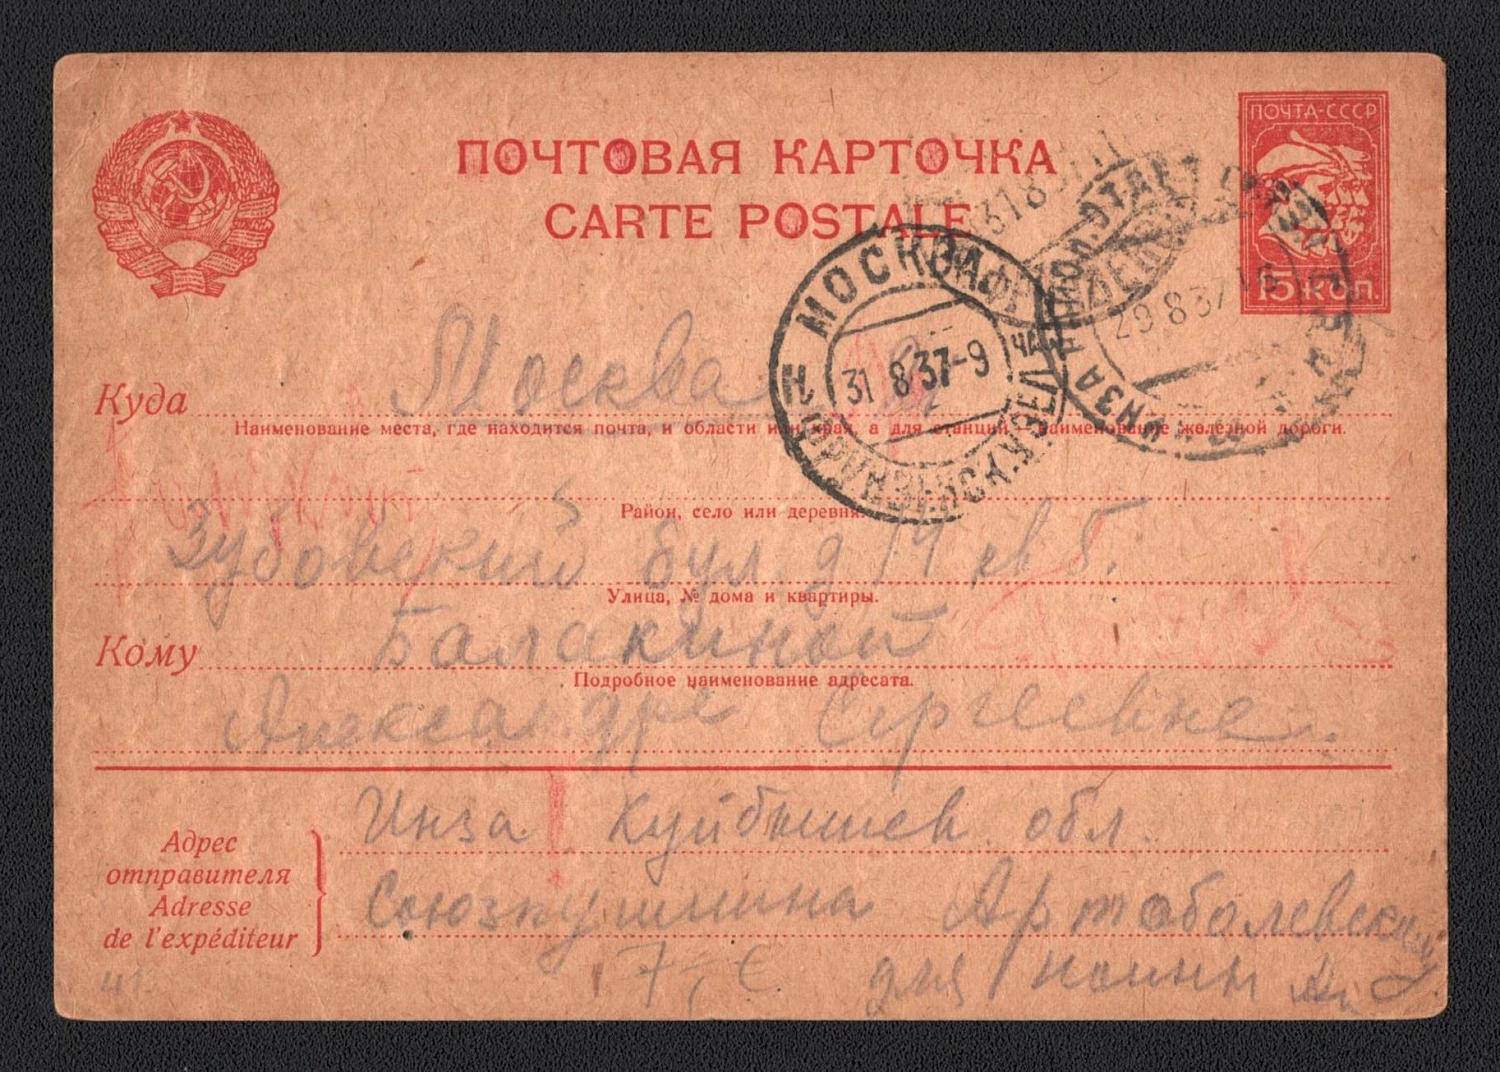 ПОЧТА-СССР
ПОЧТОВАЯ КАРТОЧКА
CARTE POSTALE
15 КОП.
МОСКВА
31 8 37-9
29 8 37
ИНЗА
Куда Москва
Наименование места, где находится почта, и области или край, а для станций — наименование железной дороги.
5
Район, село или деревня.
Зубовский бул. д 14 кв 6.
Улица, № дома и квартиры.
Кому Балакиной
Подробное наименование адресата.
Александре Сергеевне.
Инза Куйбышев обл.
Адрес
отправителя
Adresse
de l'expéditeur
Союзпушнина Артоболевский
7,- € для